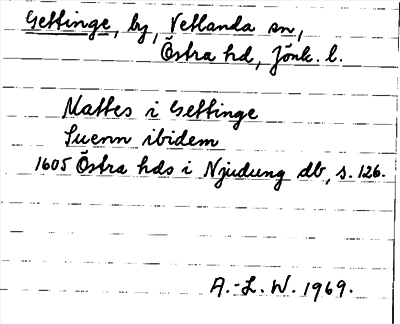 Gettinge, by, Vetlanda sn,
Östra hd, Jönk. l.
Mattes i Gettinge
Suenn ibidem
1605 Östra hds i Njudung db, s. 126.
A.-L. W. 1969.